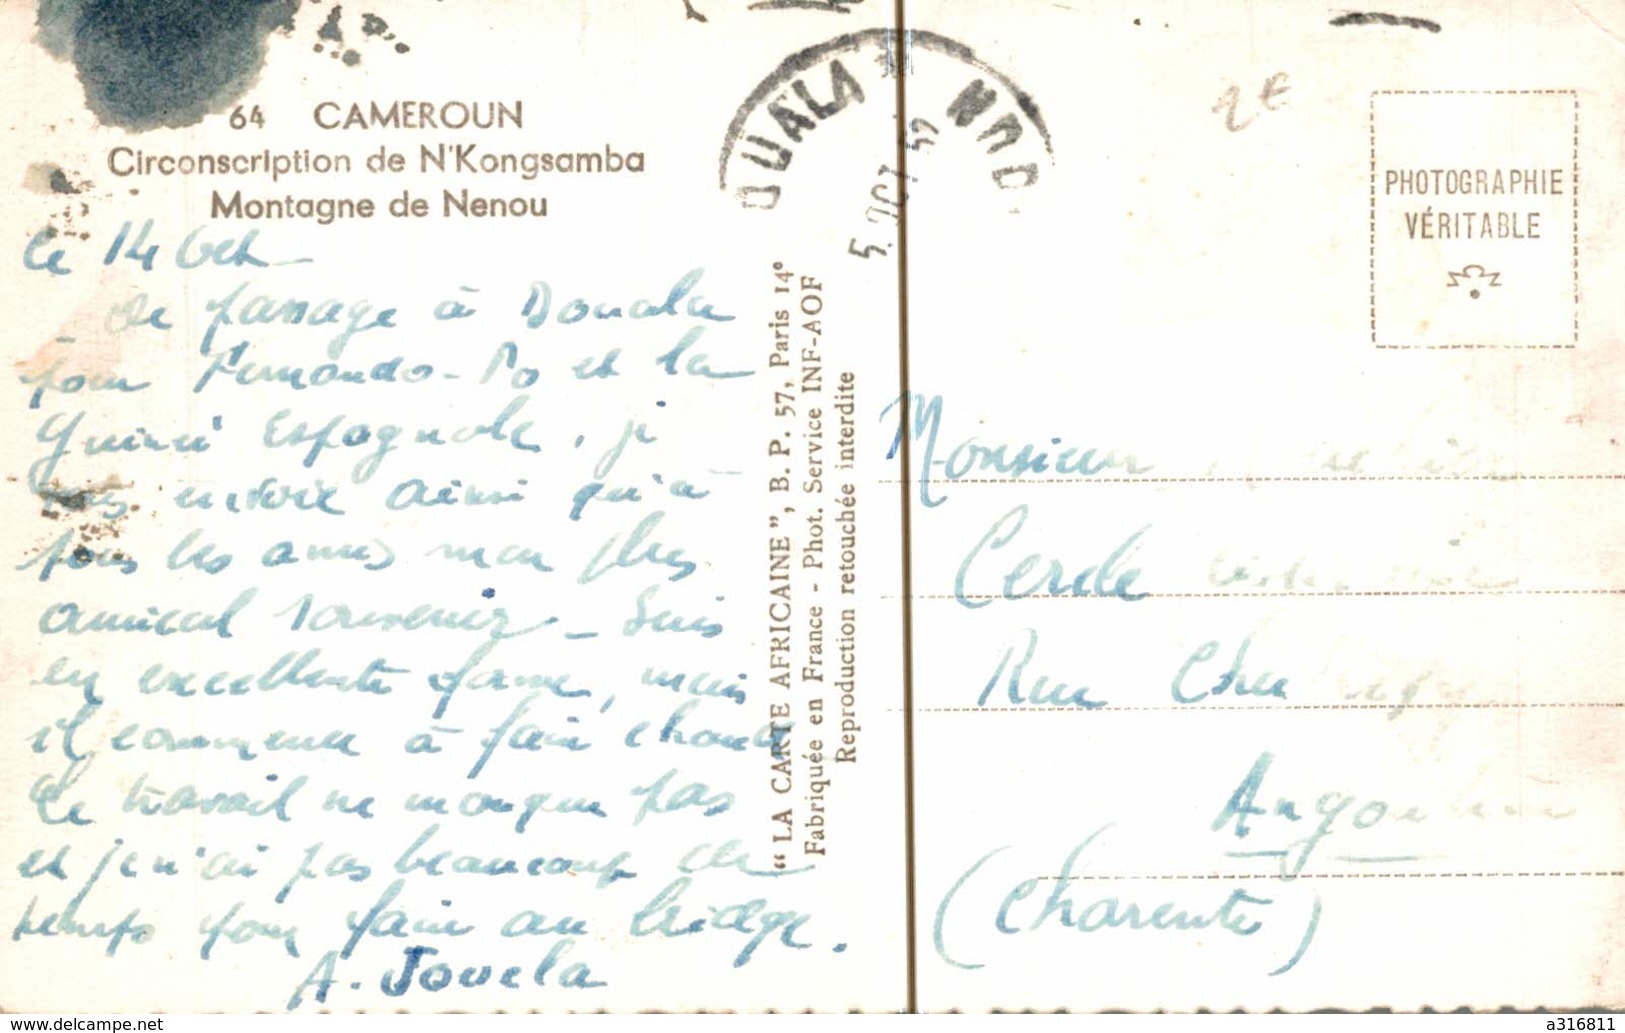 64 CAMEROUN
Circonscription de N'Kongsamba
Montagne de Nenou
le 14 Oct
de passage à Douala
pour Fernando-Po et la
Guinée Espagnole, je
vous envoie ainsi qu'à
tous les amis mon plus
amical souvenir - Suis
en excellente forme, mais
il commence à faire chaud
Le travail ne manque pas
et je n'ai pas beaucoup de
temps pour faire au bridge.
A. Jouela
"LA CARTE AFRICAINE", B. P. 57, Paris 14e
Fabriquée en France - Phot. Service INF-AOF
Reproduction retouchée interdite
OUALA
2€
PHOTOGRAPHIE
VÉRITABLE
Monsieur
Cercle
Rue
Angoulême
(Charente)
www.delcampe.net
a316811